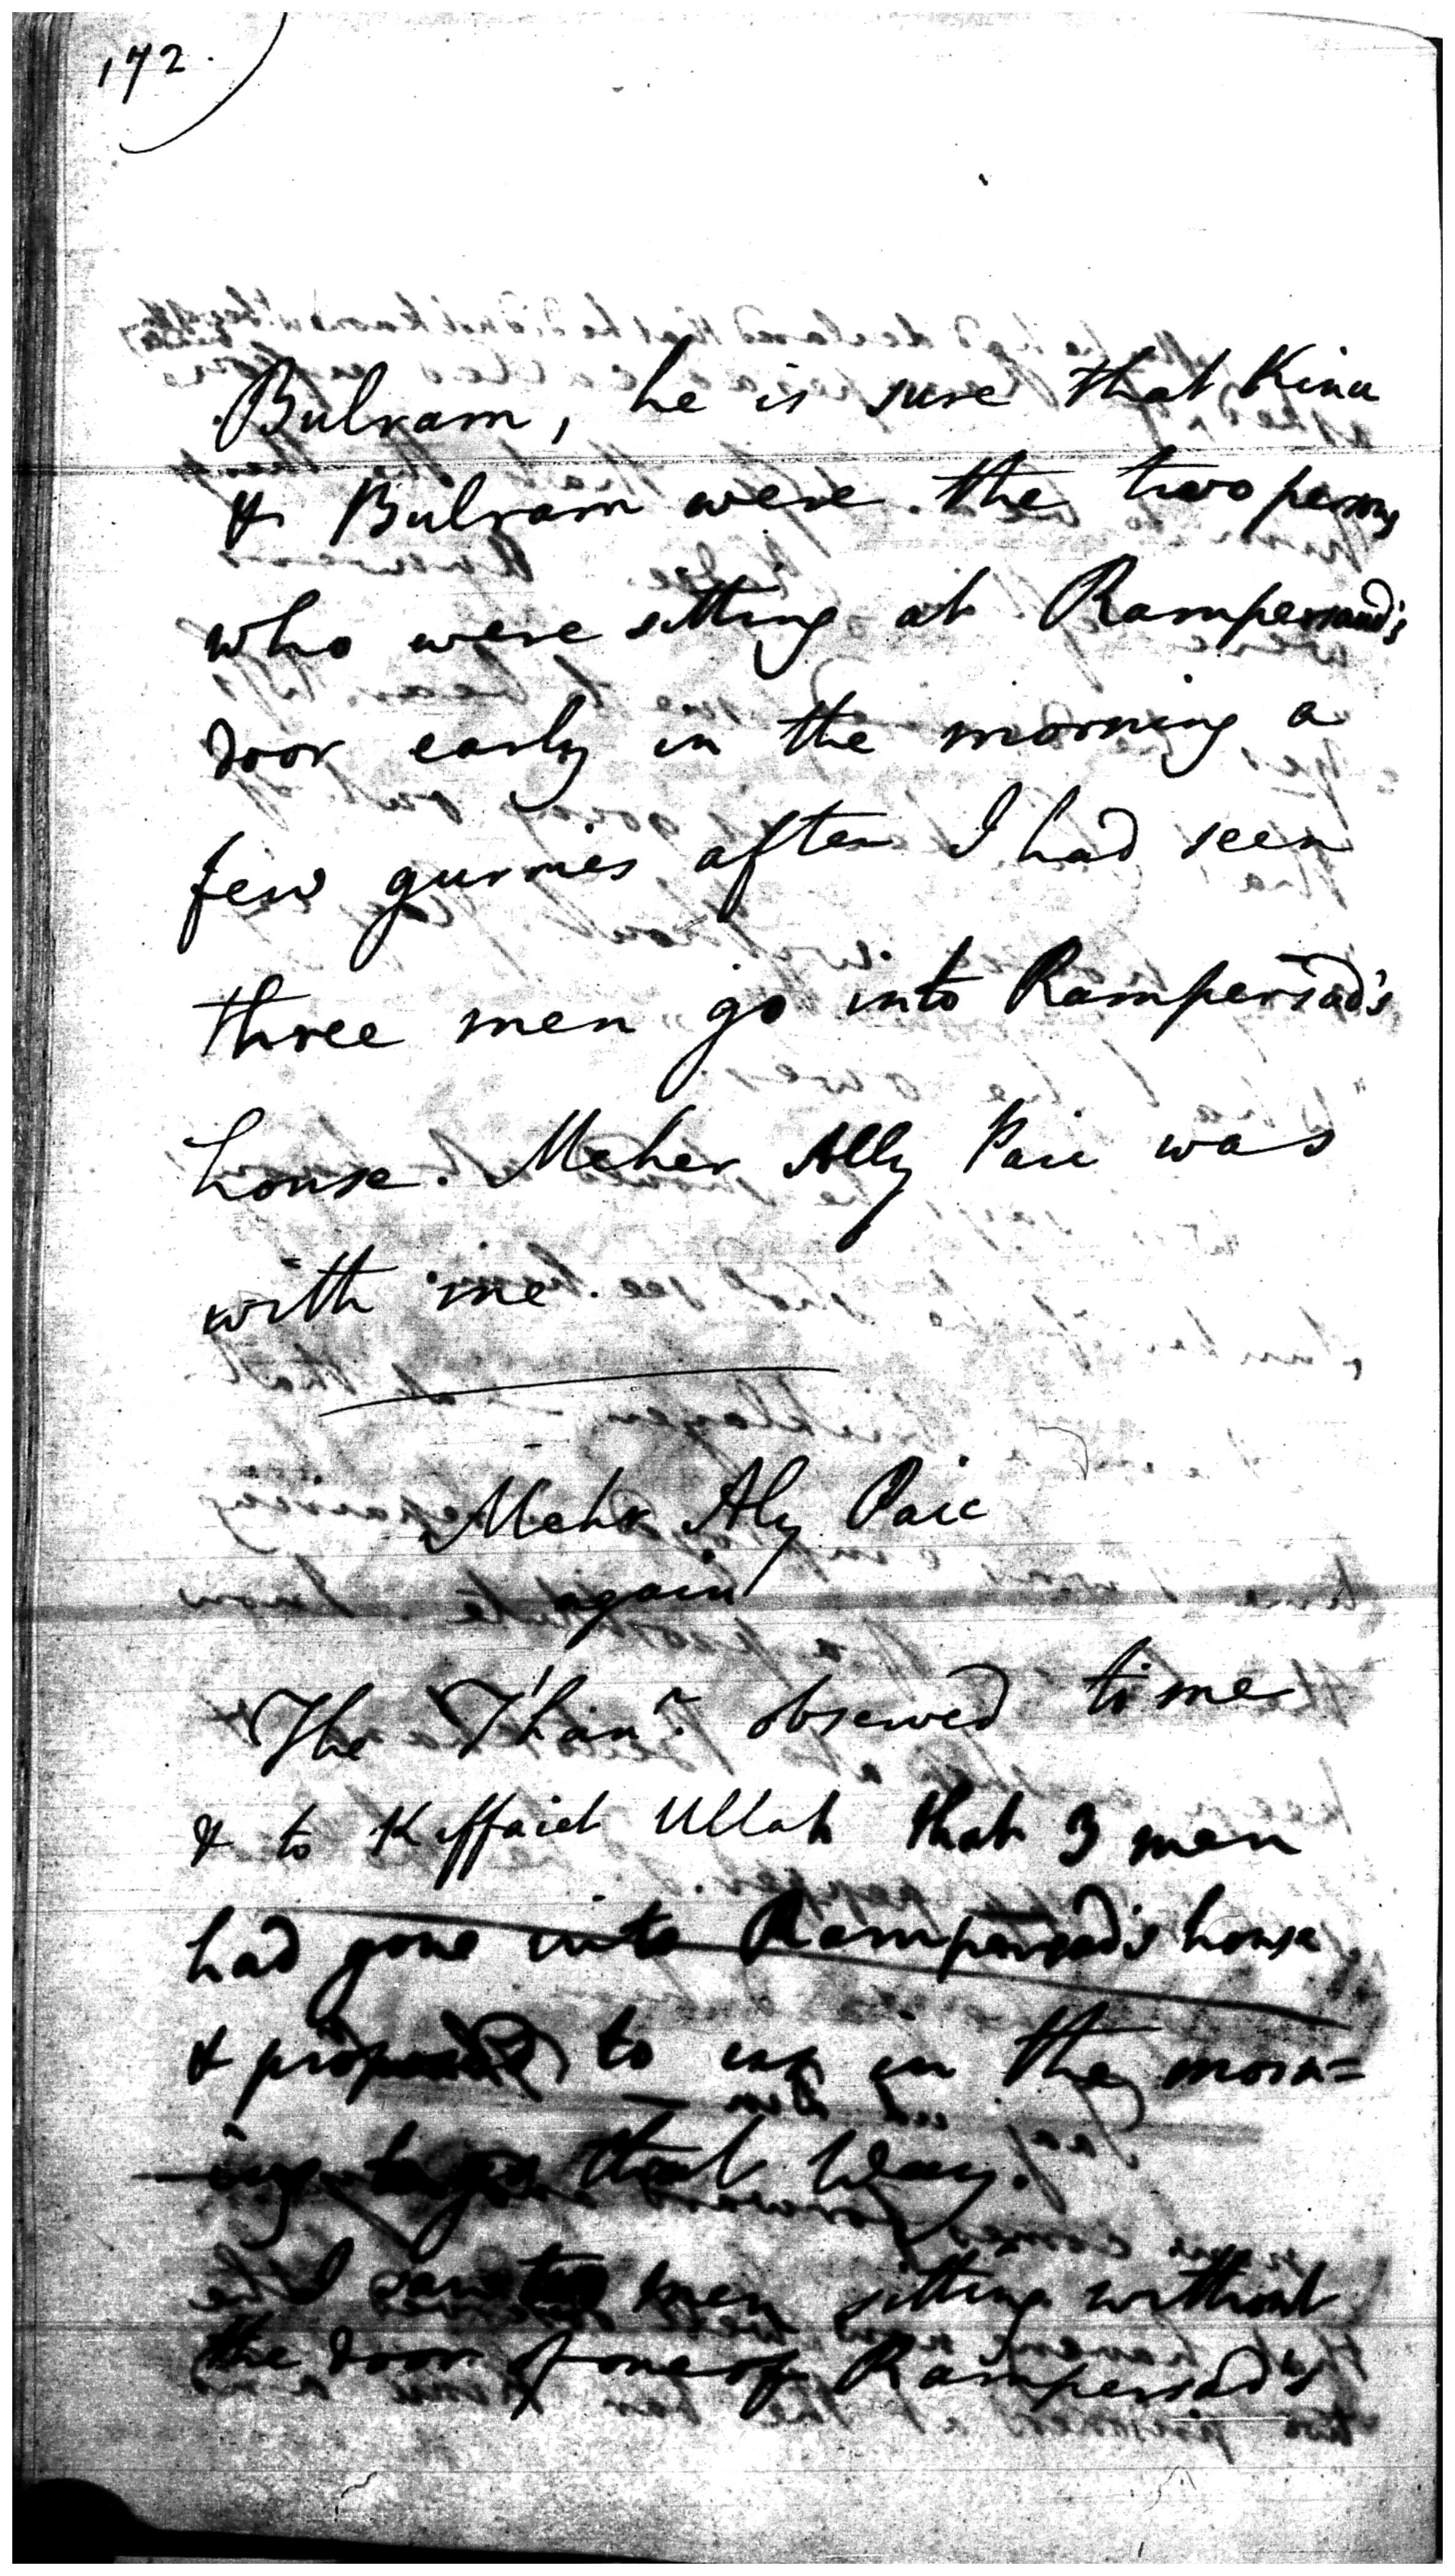 172.
Bulram, he is sure that Kinu
& Bulram were the two persons
who were sitting at Rampersaud's
door early in the morning a
few gurries after I had seen
three men go into Rampersad's
house. Meher Ally Paic was
with me.
Mehr Aly Paic
again
The Thanr. observed to me
& to Kiffaiet Ullah that 3 men
had gone into Rampersad's house
& proposed to us in the morn=
ing to go that way.
I saw two men sitting without
the door of one of Rampersad's